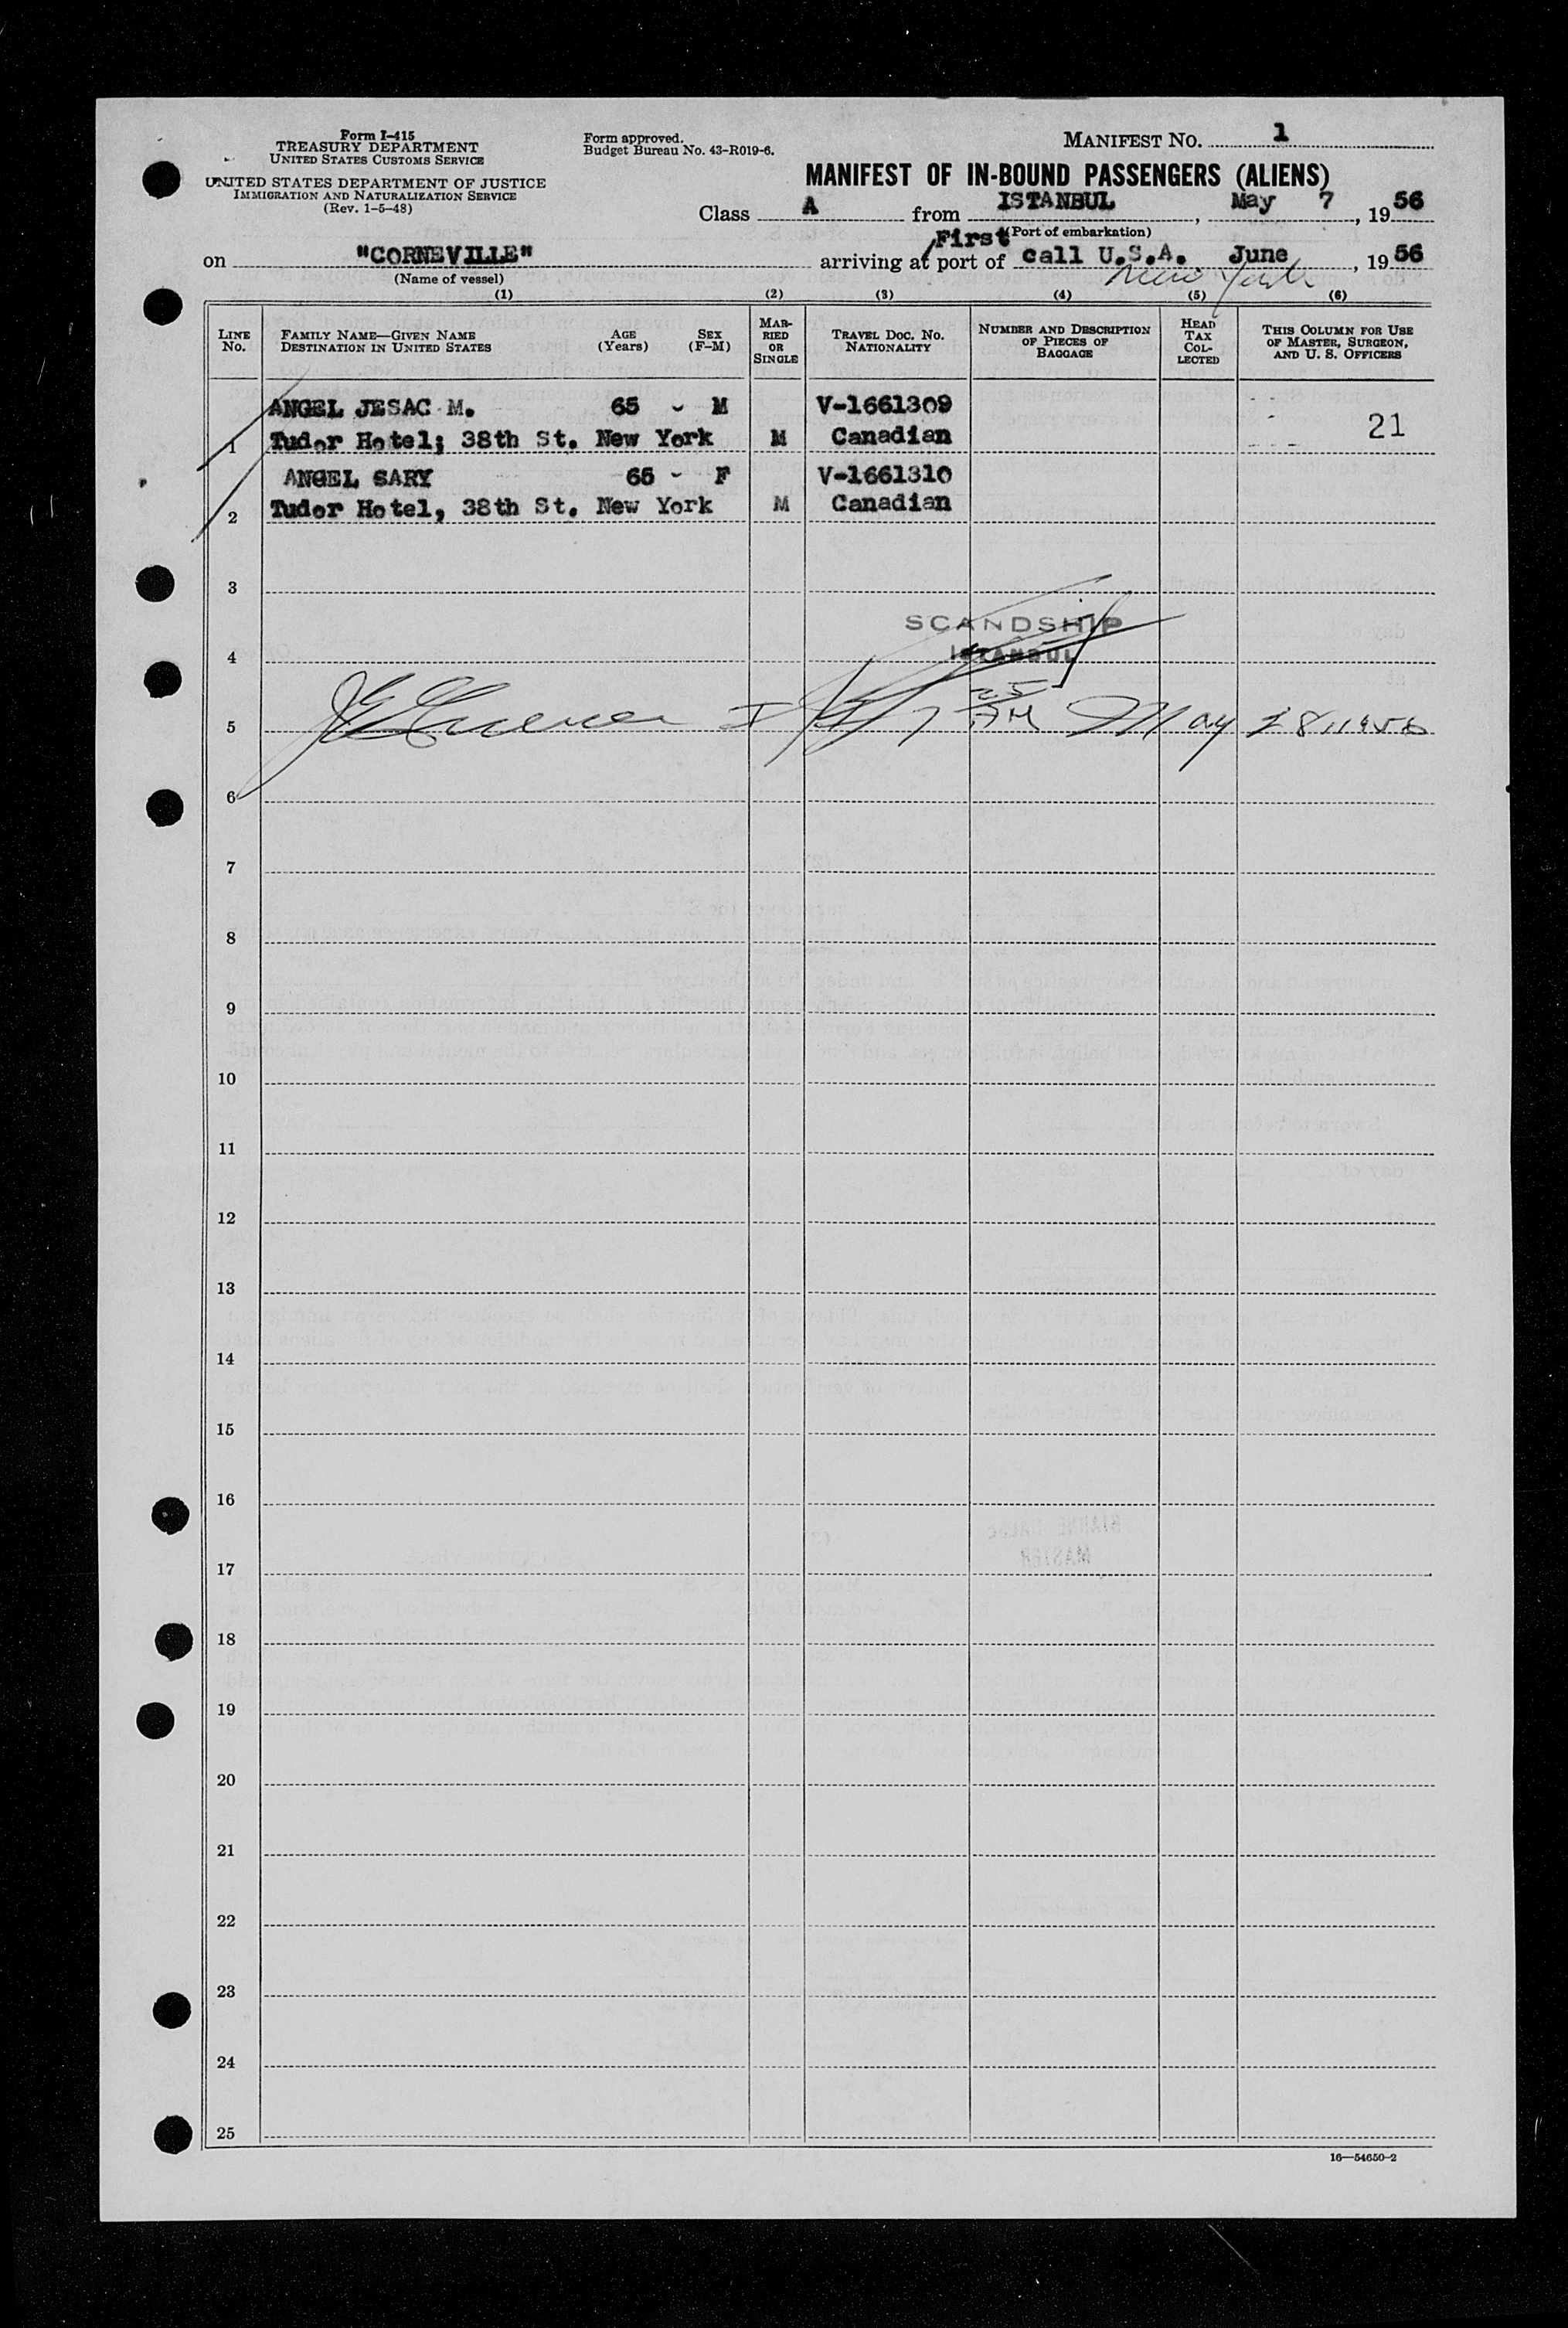 Form I-415
TREASURY DEPARTMENT
UNITED STATES CUSTOMS SERVICE
UNITED STATES DEPARTMENT OF JUSTICE
IMMIGRATION AND NATURALIZATION SERVICE
(Rev. 1-5-48)
Form approved.
Budget Bureau No. 43-R019-6.
MANIFEST NO. 1
MANIFEST OF IN-BOUND PASSENGERS (ALIENS)
Class A from ISTANBUL, May 7, 1956
(Port of embarkation)
on "CORNEVILLE" arriving at port of First call U.S.A. June, 1956
(Name of vessel)
New York
(1) (2) (3) (4) (5) (6)
LINE No.
FAMILY NAME—GIVEN NAME
DESTINATION IN UNITED STATES
AGE (Years)
SEX (F-M)
MARRIED OR SINGLE
TRAVEL DOC. NO.
NATIONALITY
NUMBER AND DESCRIPTION OF PIECES OF BAGGAGE
HEAD TAX COLLECTED
THIS COLUMN FOR USE OF MASTER, SURGEON, AND U. S. OFFICERS
ANGEL JESAC M. 65 - M V-1661309
1 Tudor Hotel; 38th St. New York M Canadian 21
ANGEL SARY 65 - F V-1661310
2 Tudor Hotel, 38th St. New York M Canadian
3
SCANDSHIP
4 ISTANBUL
5 May 28, 1956
6
7
8
9
10
11
12
13
14
15
16
17
18
19
20
21
22
23
24
25
16—54650-2